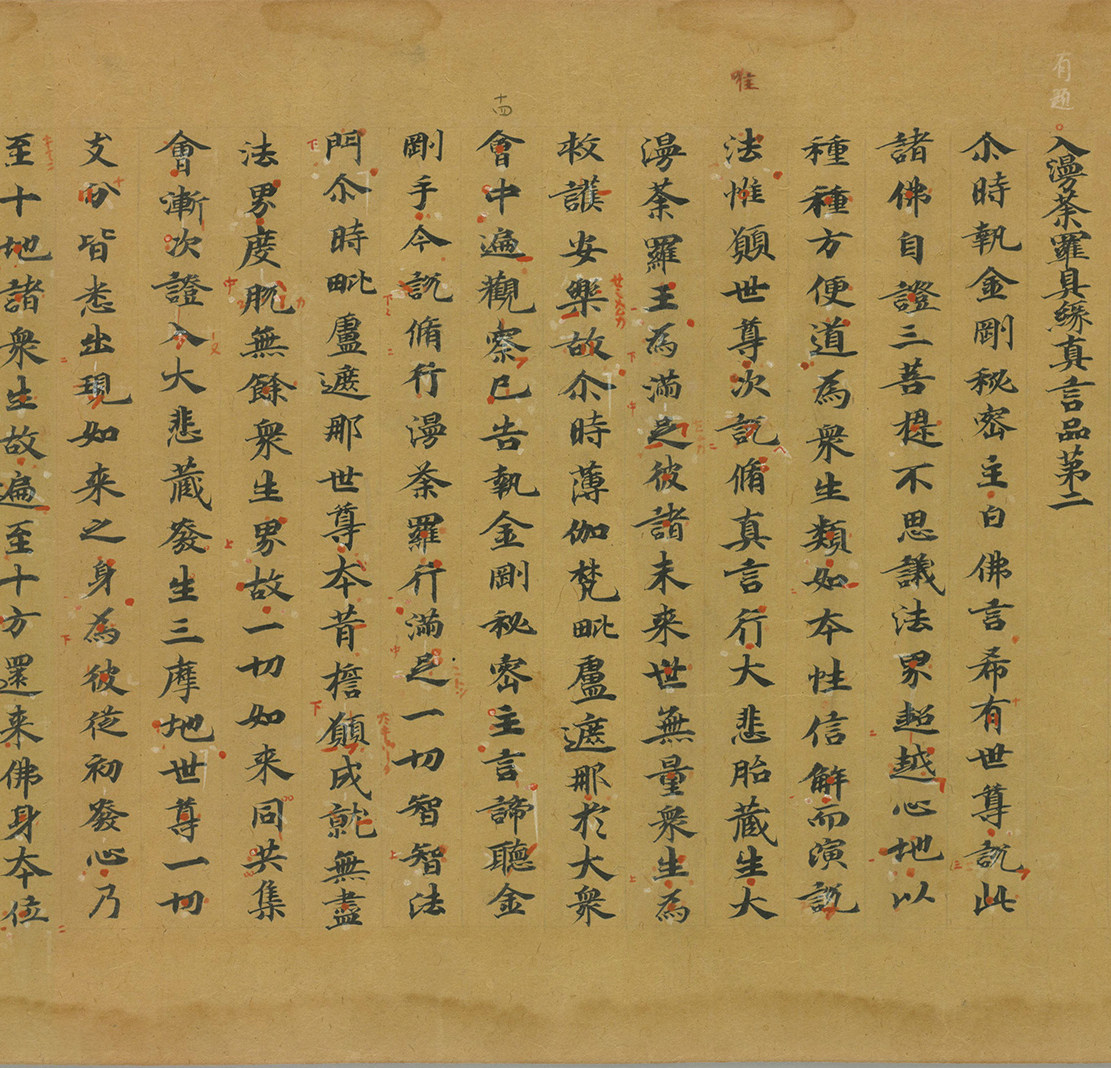 有題
入漫荼羅具縁真言品第二
尒時執金剛秘密主白佛言希有世尊說此
諸佛自證三菩提不思議法界超越心地以
種種方便道為衆生類如本性信解而演說
唯
法惟願世尊次說脩真言行大悲胎藏生大
漫荼羅王為滿之彼諸未來世無量衆生為
救護安樂故尒時薄伽梵毗盧遮那於大衆
十四
會中遍觀察已告執金剛秘密主言諦聽金
剛手今說脩行漫荼羅行滿足一切智智法
門尒時毗盧遮那世尊本昔擔願成就無盡
法界度脫無餘衆生界故一切如来同共集
會漸次證入大悲藏發生三摩地世尊一切
支分皆悉出現如来之身為彼從初發心乃
至十地諸衆生故遍至十方還来佛身本位